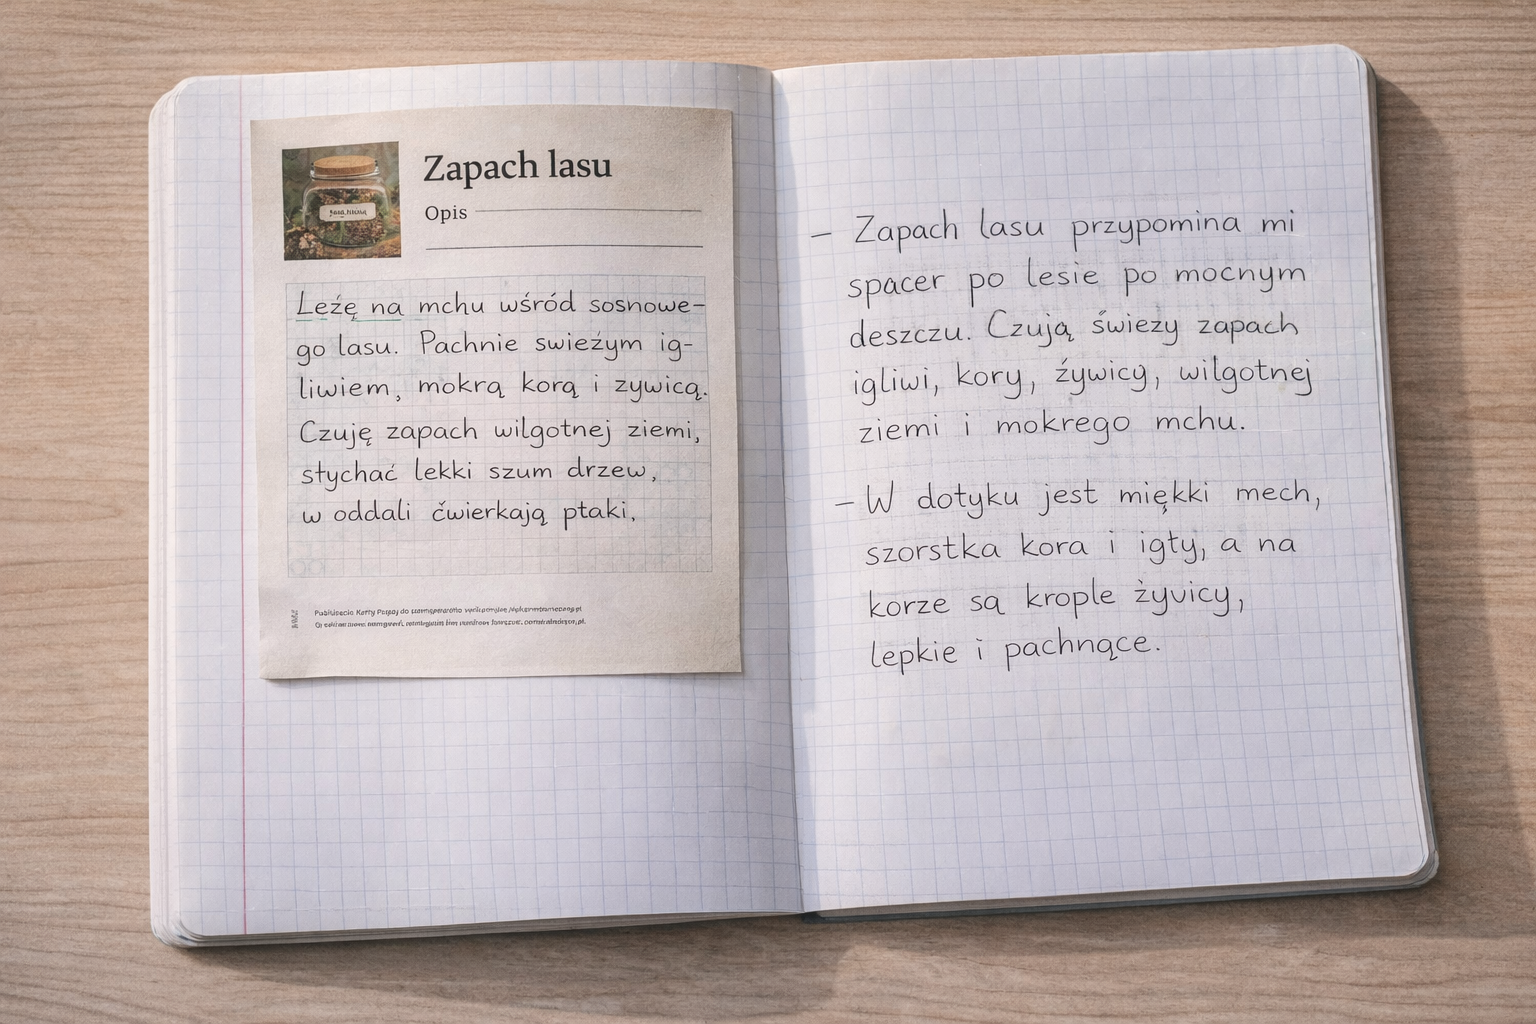 Zapach lasu
Opis
Leźę na mchu wśród sosnowe-
go lasu. Pachnie swieźym ig-
liwiem, mokrą korą i zywicą.
Czuję zapach wilgotnej ziemi,
stychać lekki szum drzew,
w oddali ćwierkają ptaki,
– Zapach lasu przypomina mi
spacer po lesie po mocnym
deszczu. Czują świezy zapach
igliwi, kory, źywicy, wilgotnej
ziemi i mokrego mchu.
– W dotyku jest miękki mech,
szorstka kora i igty, a na
korze są krople żyvicy,
lepkie i pachnące.